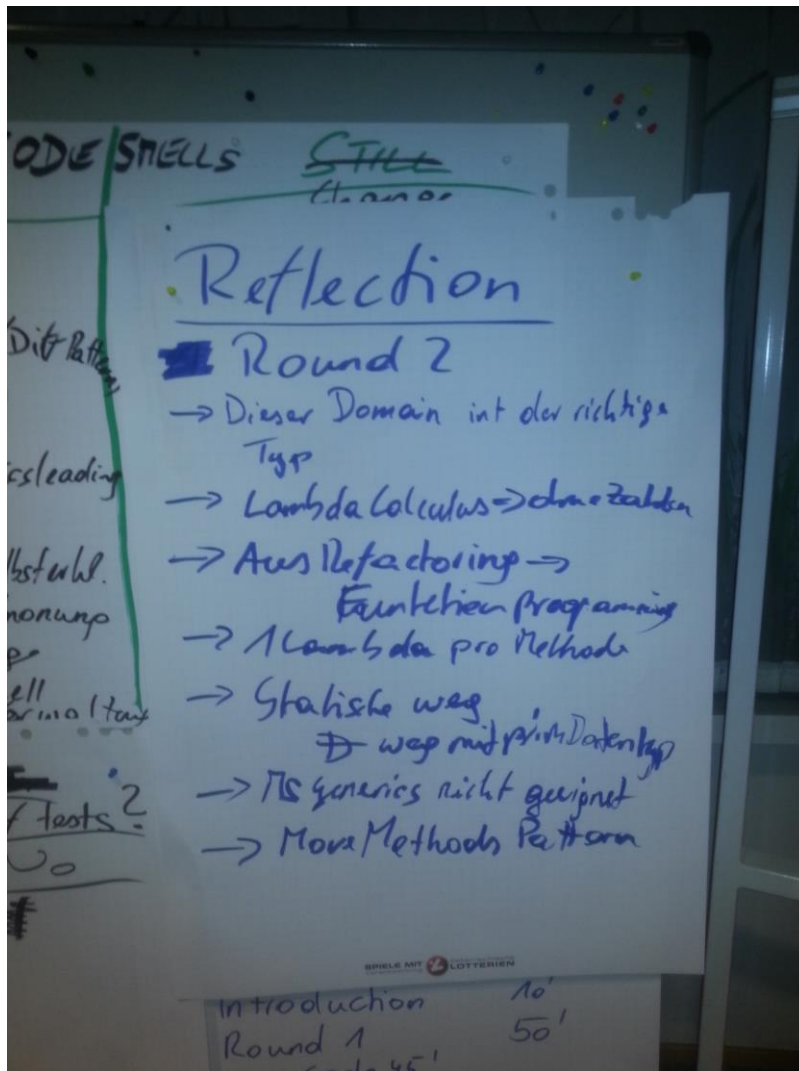 ODE SMELLS STILL
Cleaner
Reflection
Round 2
→ Dieser Domain ist der richtige
Typ
→ Lambda Calculus => ohne Zahlen
→ Aus Refactoring →
Funktionen programming
→ 1 Lambda pro Methode
→ Statische weg
weg mit prim Datentyp
→ MS generics nicht geeignet
→ Move Methods Pattern
SPIELE MIT LOTTERIEN
Patterns
ssleading
tests?
Introduction 10'
Round 1 50'
45'